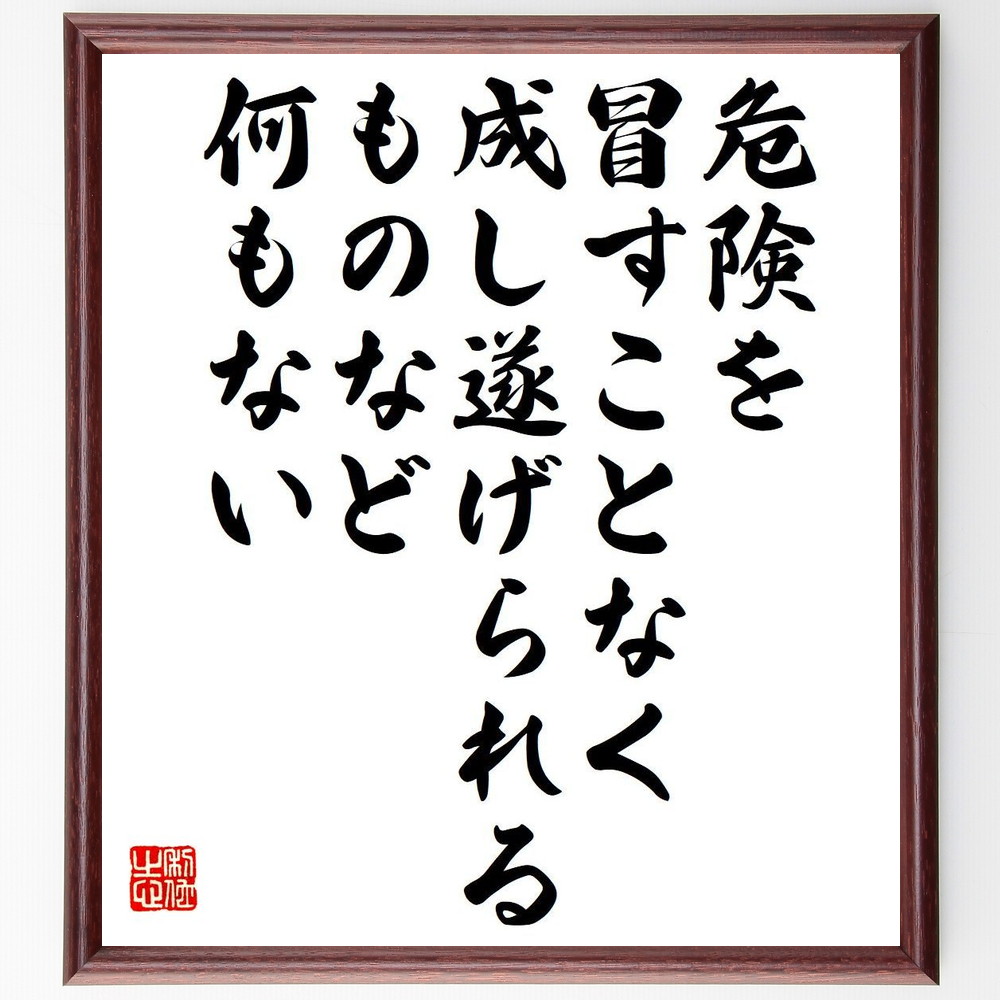 危険を
冒すことなく
成し遂げられる
ものなど
何もない